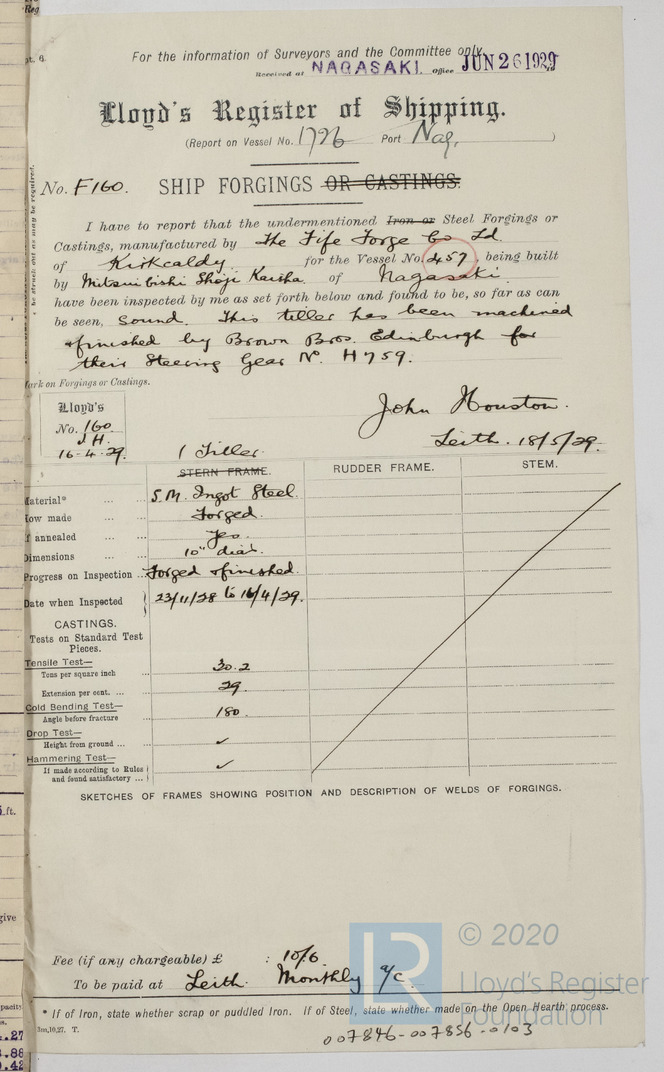 For the information of Surveyors and the Committee only.
Received at NAGASAKI. Office JUN 26 1929
Lloyd's Register of Shipping.
(Report on Vessel No. 1726 Port Nag. )
No. F160. SHIP FORGINGS OR CASTINGS.
I have to report that the undermentioned Iron or Steel Forgings or
Castings, manufactured by The Fife Forge Co Ld.
of Kirkcaldy for the Vessel No. 457, being built
by Mitsuibishi Shoji Kaisha of Nagasaki
have been inspected by me as set forth below and found to be, so far as can
be seen, Sound. This tiller has been machined
& finished by Brown Bros. Edinburgh for
their Steering Gear No. H759.
Mark on Forgings or Castings.
Lloyd's
No. 160
J.H.
16-4-29.
John Houston.
Leith. 18/5/29.
1 Tiller
STERN FRAME. RUDDER FRAME. STEM.
Material* ... ... S.M. Ingot Steel.
How made ... ... Forged.
If annealed ... ... Yes.
Dimensions ... ... 10" dia.
Progress on Inspection ... Forged & finished.
Date when Inspected 23/11/28 to 16/4/29.
CASTINGS.
Tests on Standard Test
Pieces.
Tensile Test—
Tons per square inch 30.2
Extension per cent. ... ... 29.
Cold Bending Test—
Angle before fracture ... 180.
Drop Test—
Height from ground ... ... ✓
Hammering Test—
If made according to Rules
and found satisfactory ... ✓
SKETCHES OF FRAMES SHOWING POSITION AND DESCRIPTION OF WELDS OF FORGINGS.
Fee (if any chargeable) £ : 10/6
To be paid at Leith. Monthly a/c.
* If of Iron, state whether scrap or puddled Iron. If of Steel, state whether made on the Open Hearth process.
10,27. T.
007846-007856-0103
LR
© 2020
Lloyd's Register
Foundation